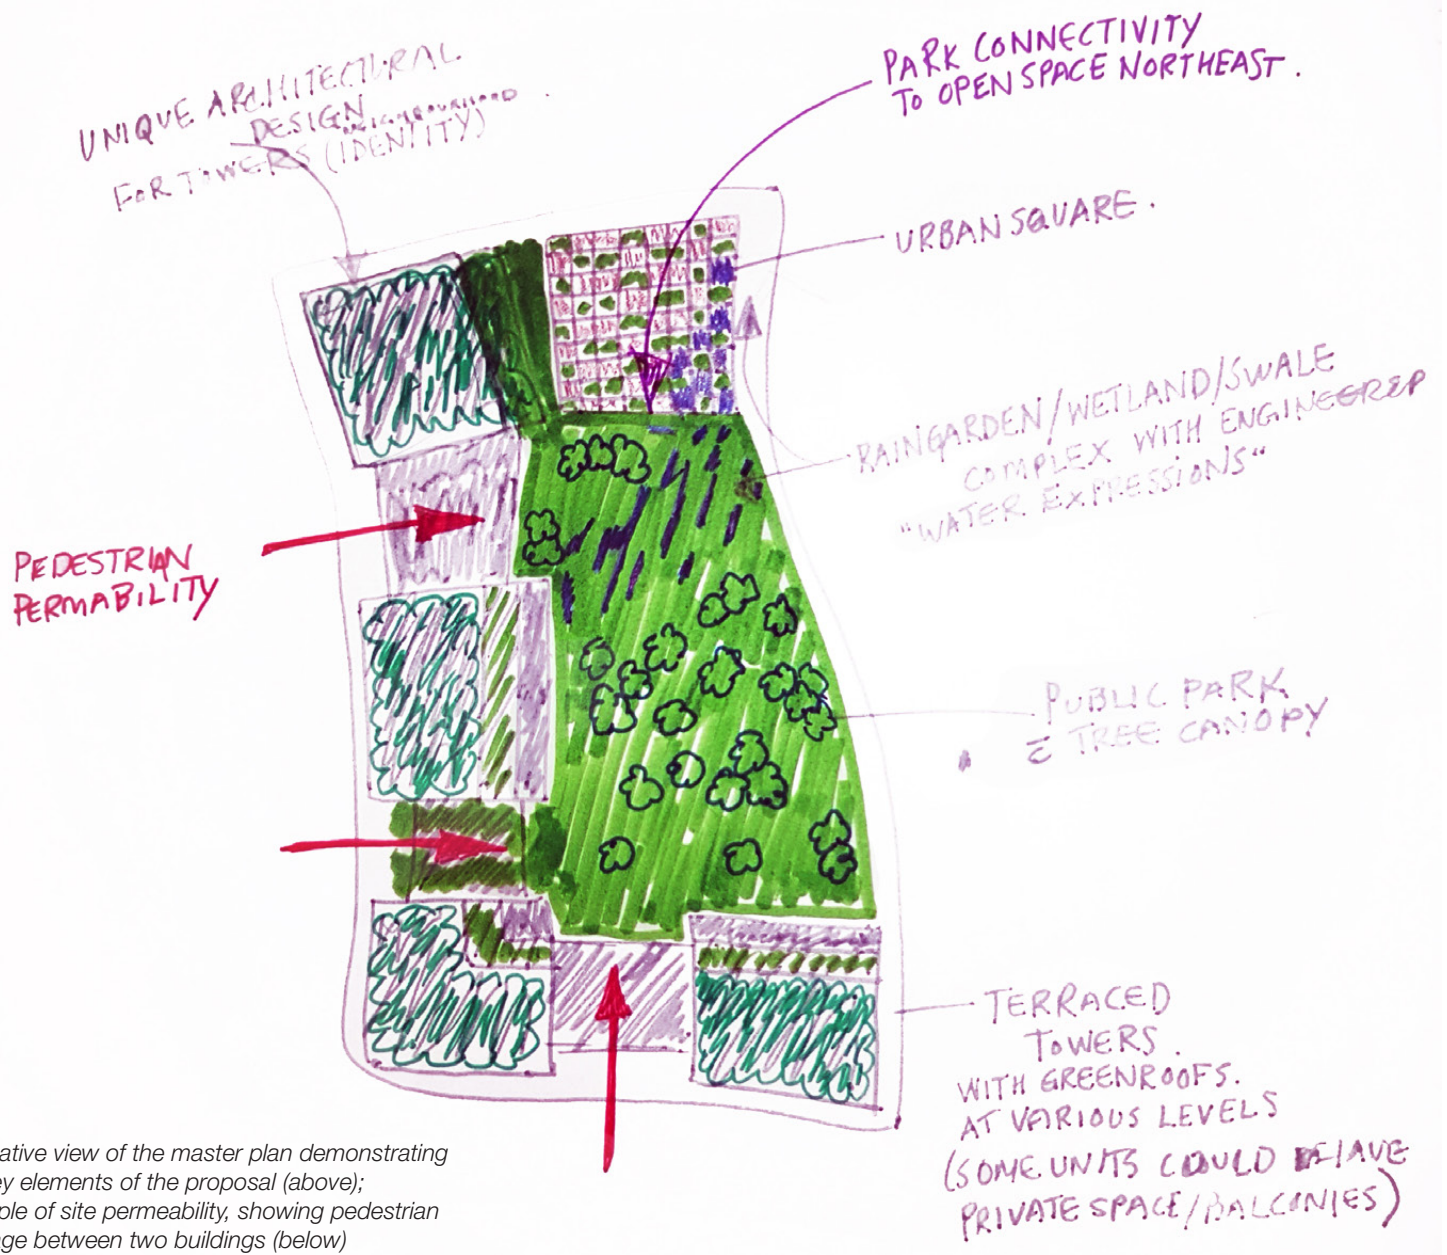 UNIQUE ARCHITECTURAL
DESIGN
NEIGHBOURHOOD
FOR TOWERS (IDENTITY)
PARK CONNECTIVITY
TO OPEN SPACE NORTHEAST.
URBAN SQUARE.
RAINGARDEN/WETLAND/SWALE
COMPLEX WITH ENGINEERED
"WATER EXPRESSIONS"
PEDESTRIAN
PERMABILITY
PUBLIC PARK
c̄ TREE CANOPY
TERRACED
TOWERS.
WITH GREENROOFS.
AT VARIOUS LEVELS
(SOME UNITS COULD HAVE
PRIVATE SPACE/BALCONIES)
ative view of the master plan demonstrating
ey elements of the proposal (above);
ple of site permeability, showing pedestrian
ge between two buildings (below)